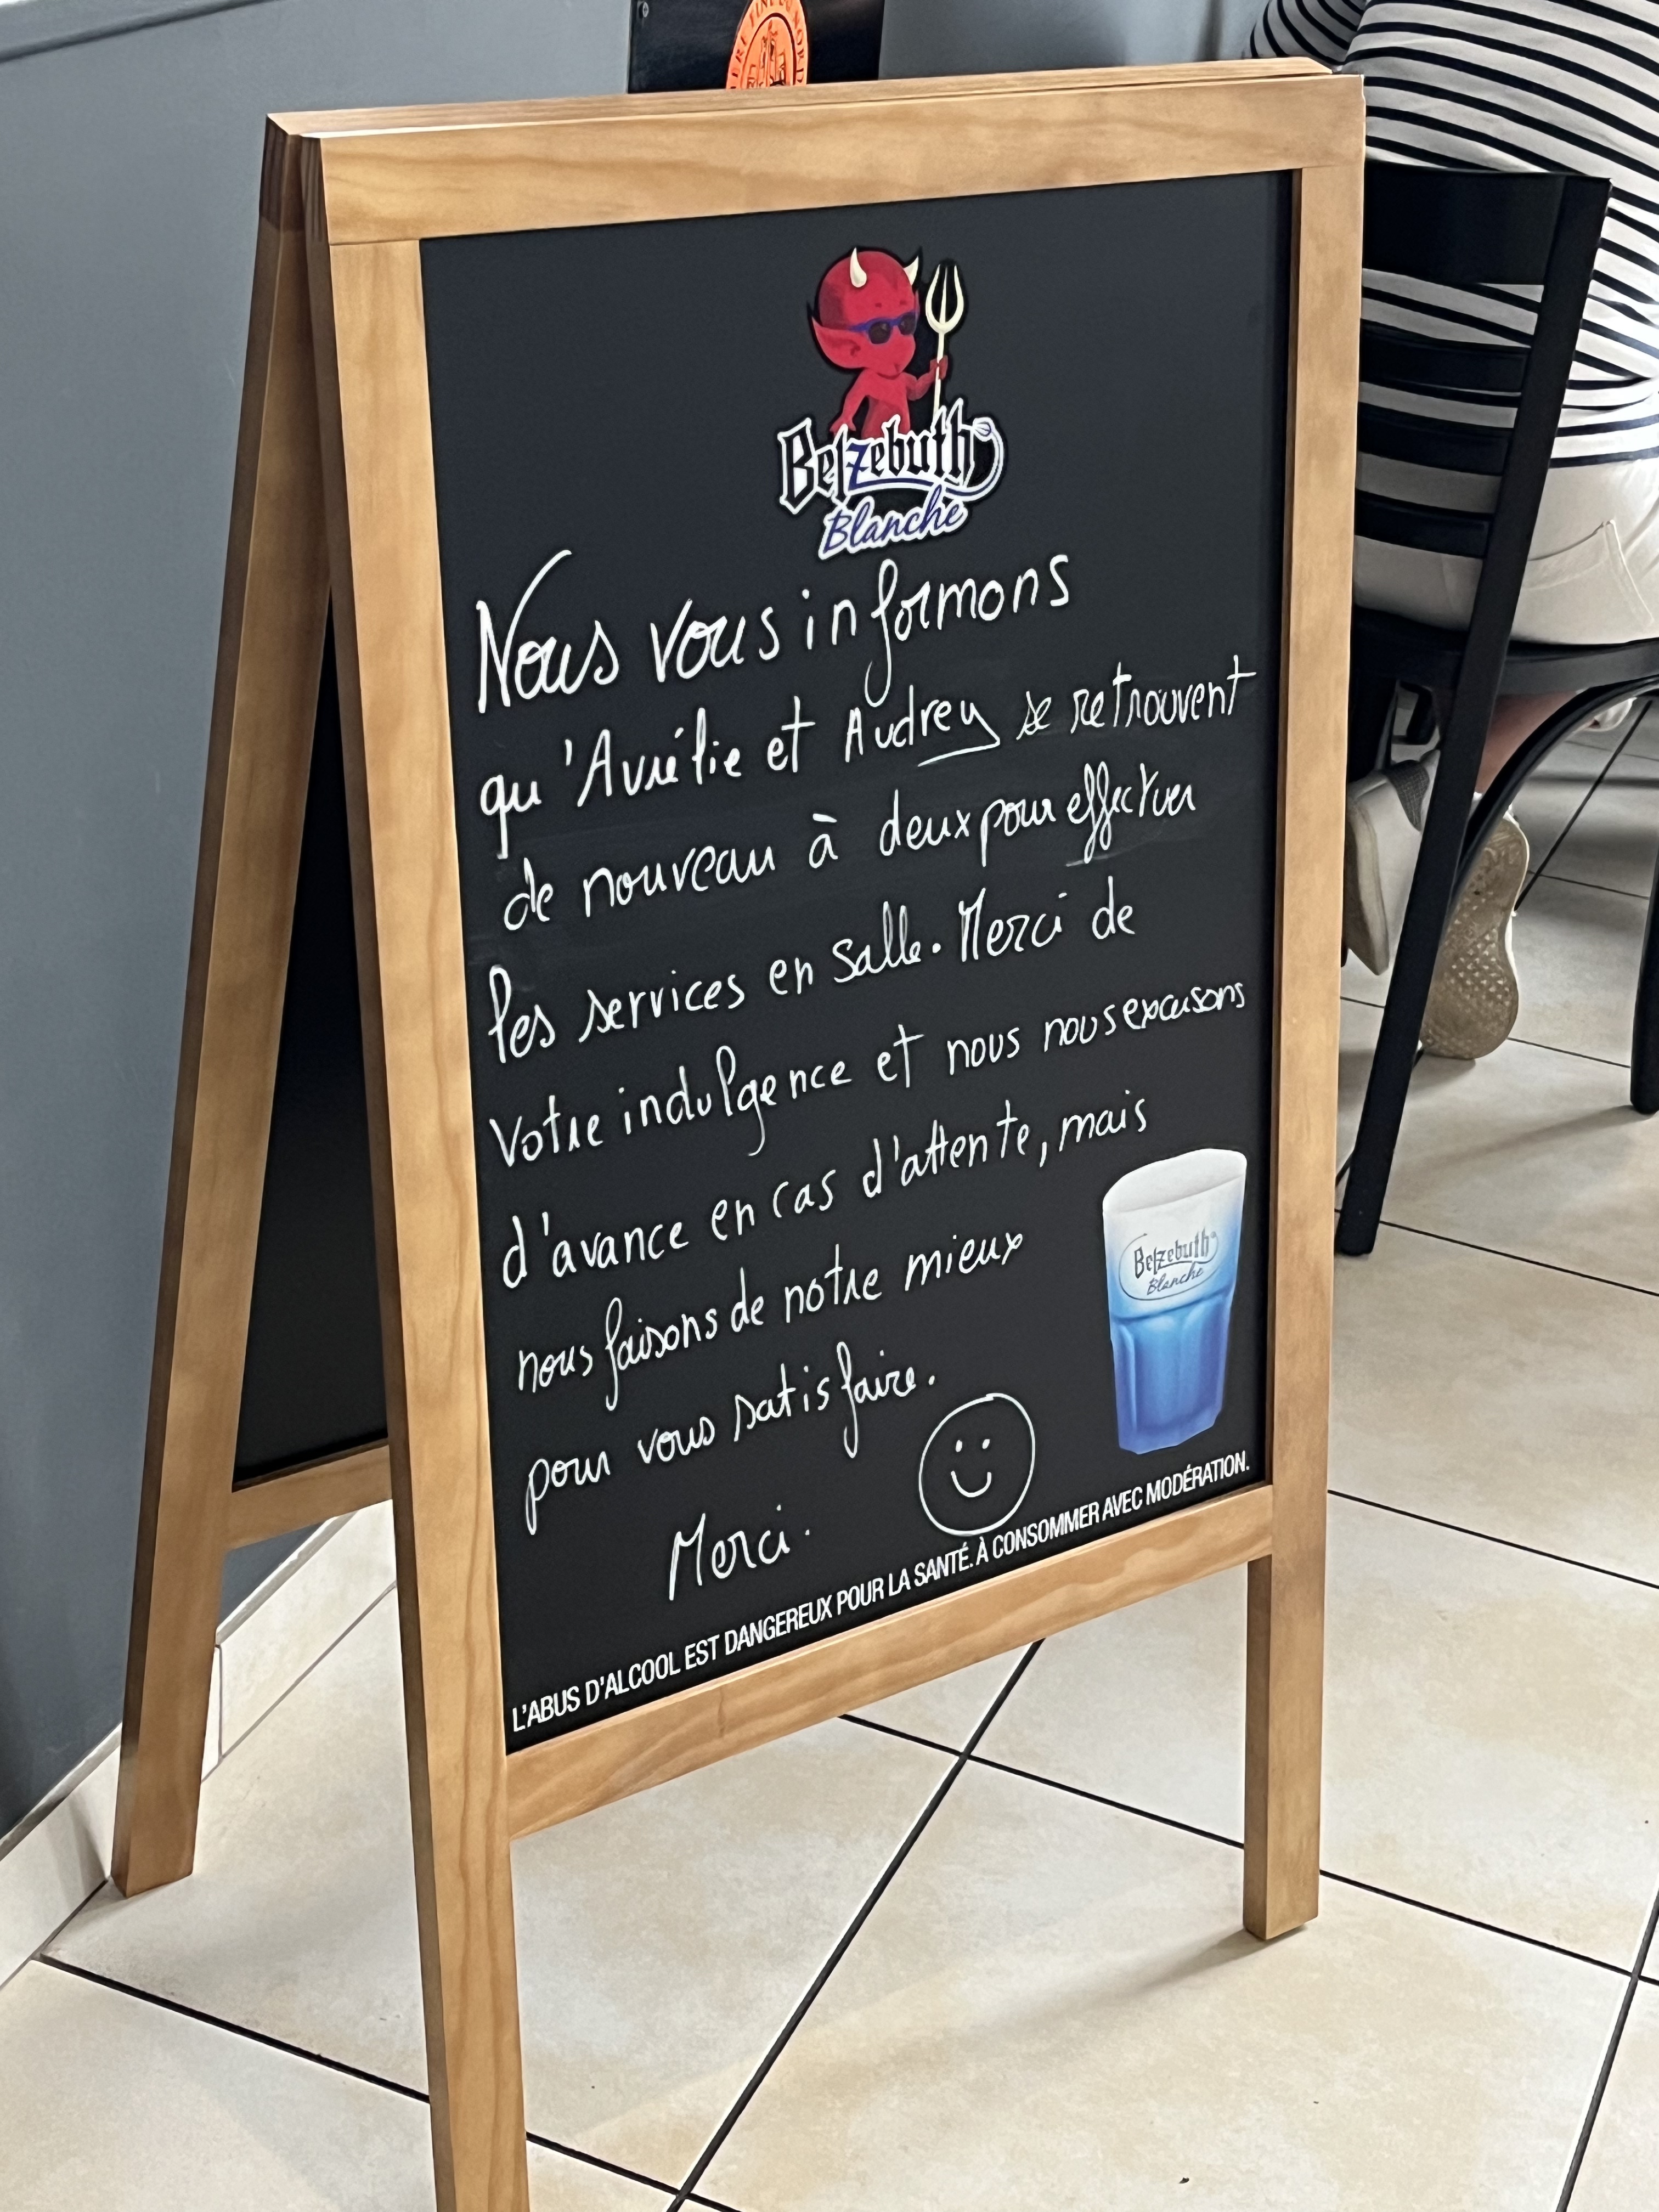 Belzebuth
Blanche
Nous vous informons
qu'Aurélie et Audrey se retrouvent
de nouveau à deux pour effectuer
les services en salle. Merci de
votre indulgence et nous nous excusons
d'avance en cas d'attente, mais
nous faisons de notre mieux
pour vous satisfaire.
Merci.
Belzebuth
Blanche
L'ABUS D'ALCOOL EST DANGEREUX POUR LA SANTÉ. À CONSOMMER AVEC MODÉRATION.